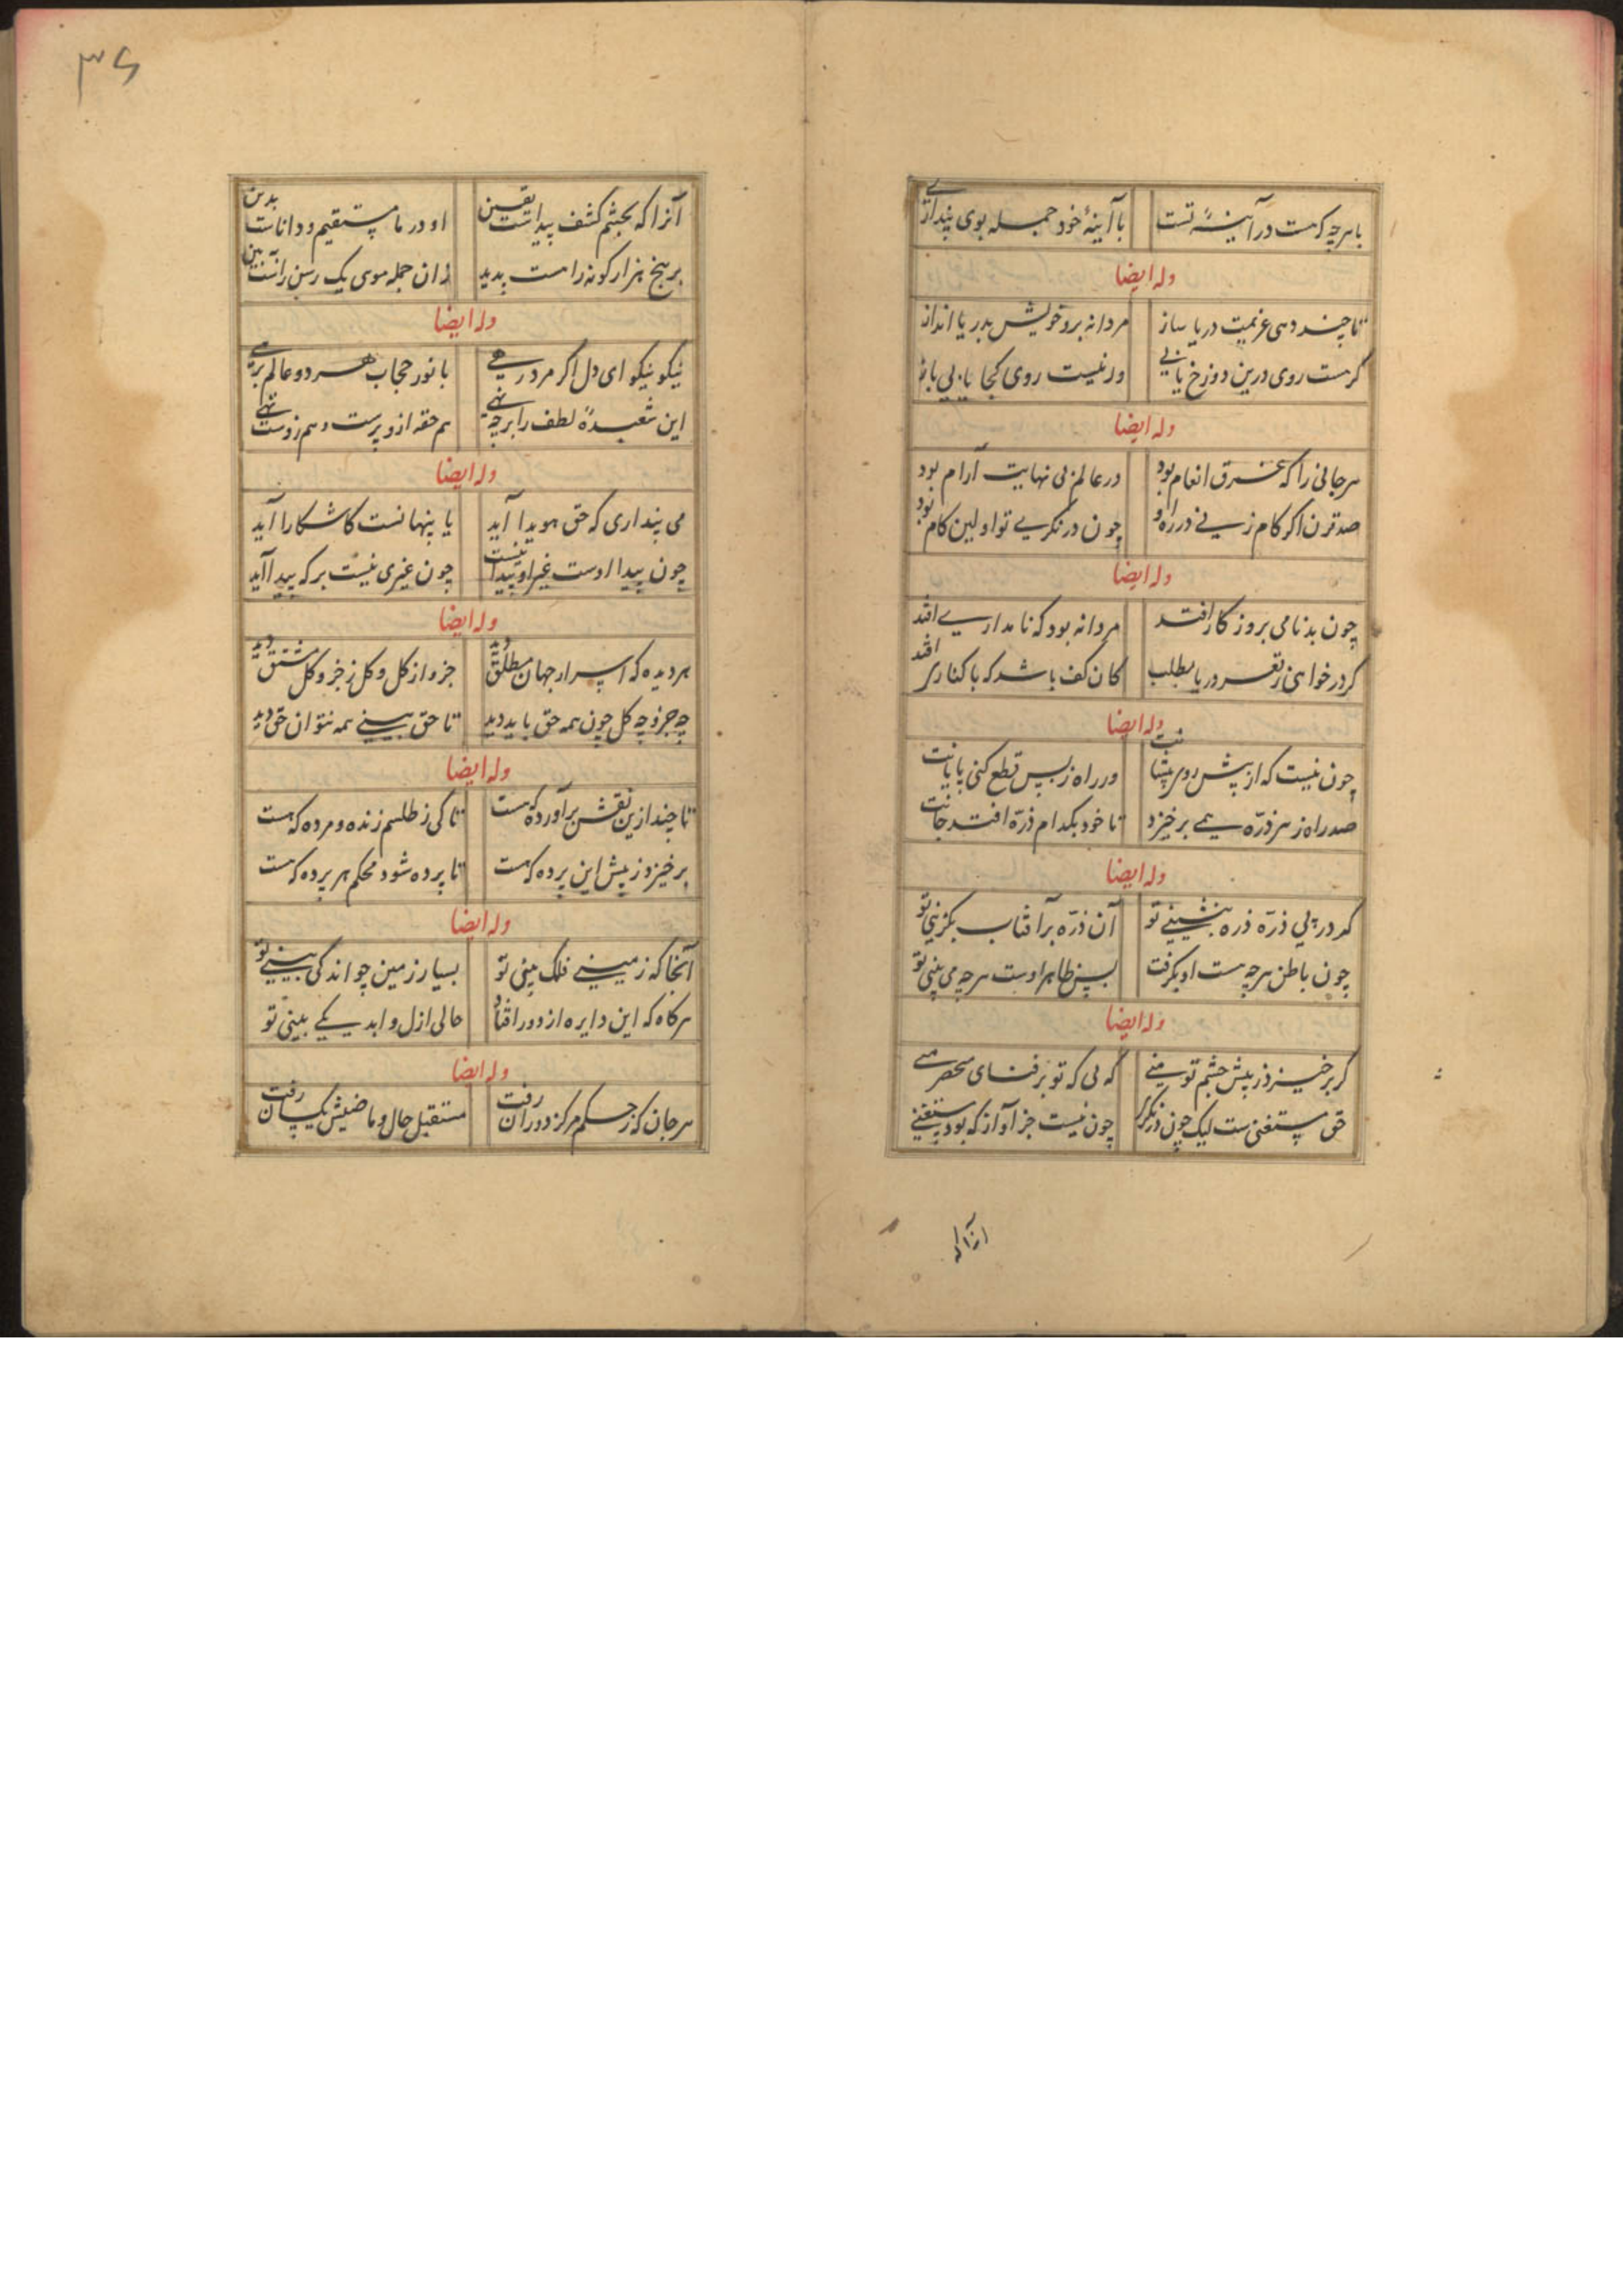 با هرچه که هست در آیینهٔ تست با آیینهٔ خود جمله بوی پندازی
وله ایضا
تا چند دهی عزیمت دریا ساز مردانه برو خویش بدریا انداز
گر هست روی درین دوزخ یابی ور نیست روی کجا یابی باز
وله ایضا
هر جانی را که غرق انعام بود در عالم بی نهایت آرام بود
صد قرن اگر گام زنی در ره او چون درنگری تو اولین گام بود
وله ایضا
چون بدنامی بروزگار افتد مردانه بود که نامداری افتد
گر در خواهی ز قعر دریا مطلب کان کف باشد که با کناری افتد
وله ایضا
چون نیست که از پیش رود ور راه ز پس قطع کنی پایانت
صد راه ز هر ذره همی برخیزد تا خود بکدام ذره افتد جانت
وله ایضا
گر در پی ذره ذره بنشینی تو آن ذره بر آفتاب بگزینی تو
چون باطن هر چه هست او بگرفت پس ظاهر اوست هر چه می بینی تو
وله ایضا
گر برخیزد ز پیش چشم تو منی که بی که تو بر فنای محض
حق مستغنی ست لیک چون درنگری چون نیست جز او از که بود مستغنی
آنرا که
۳۶
آنرا که بچشم کشف پیداست یقین او در ما مستقیم و داناست بدین
بر هیچ هزار گونه راهست پدید زان جمله موی یک رسن راست ببین
وله ایضا
نیکو نیکو ای دل اگر مرد رهی با نور حجاب هر دو عالم برهی
این شعبدهٔ لطف را بر چه نهی هم حقه ازو پرست و هم زوست تهی
وله ایضا
می پنداری که حق هویدا آید یا پنهانست کاشکارا آید
چون پیدا اوست غیر او پیدا نیست چون غیری نیست بر که پیدا آید
وله ایضا
هر دیده که اسرار جهان مطلق دید جزو از کل و کل ز جزو کل مشتق دید
چه جزو چه کل چون همه حق باید دید تا حق بینی همه نتوان حق دید
وله ایضا
تا چند ازین نقش برآورده که هست تا کی ز طلسم زنده و مرده که هست
برخیز و ز پیش این پرده که هست تا پرده شود محکم هر پرده که هست
وله ایضا
آنجا که زمینی فلک بینی تو بسیار زمین چو اندکی بینی تو
هرگاه که این دایره از دور افتاد حالی ازل و ابد یکی بینی تو
وله ایضا
هر جان که ز حکم مرکز دوران رفت مستقبل حال و ماضیش یکسان رفت